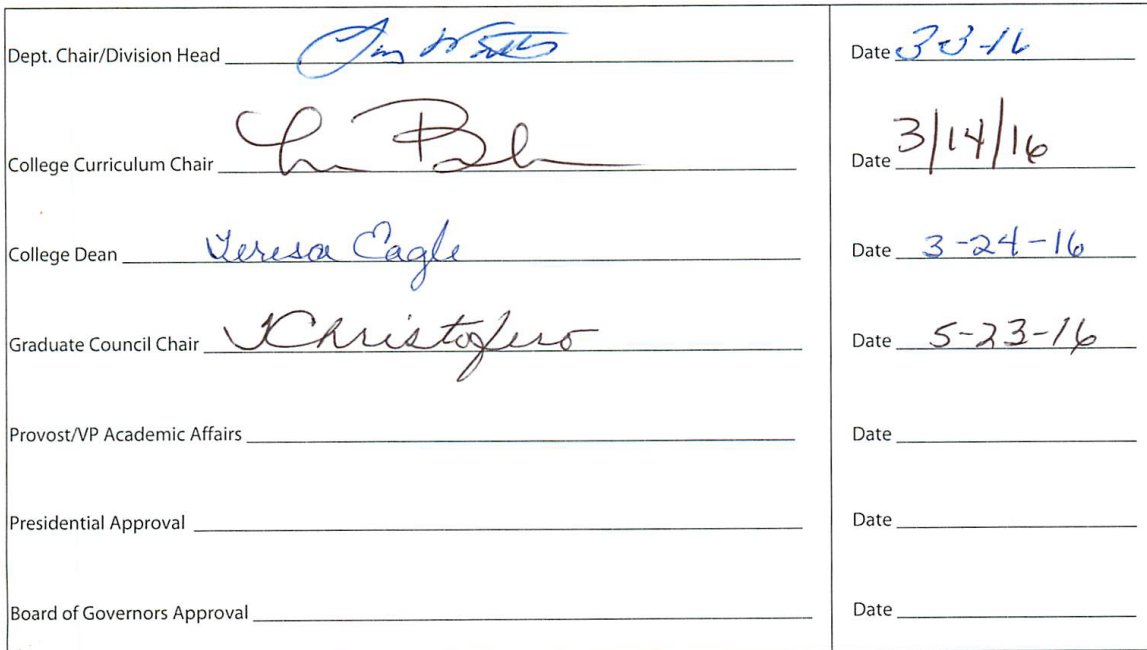 Dept. Chair/Division Head Date 3-3-16
College Curriculum Chair Date 3/14/16
College Dean Teresa Eagle Date 3-24-16
Graduate Council Chair TChristofero Date 5-23-16
Provost/VP Academic Affairs Date
Presidential Approval Date
Board of Governors Approval Date